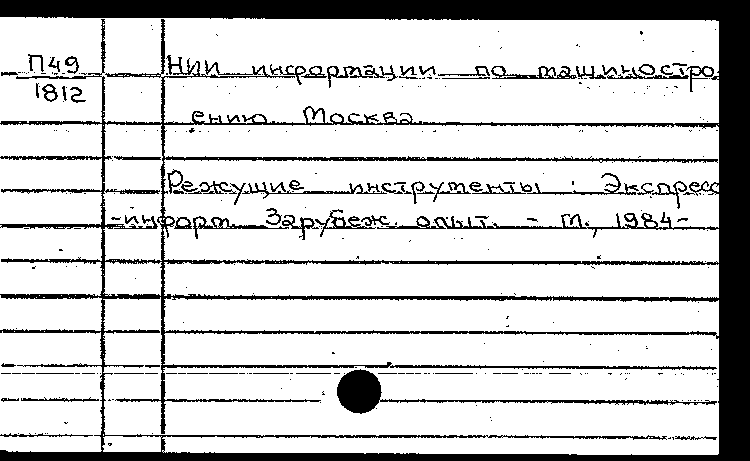 П49
1812
НИИ информации по машиностро-
ению. Москва.
Режущие инструменты : Экспресс
-информ. Зарубеж. опыт. - М., 1984-